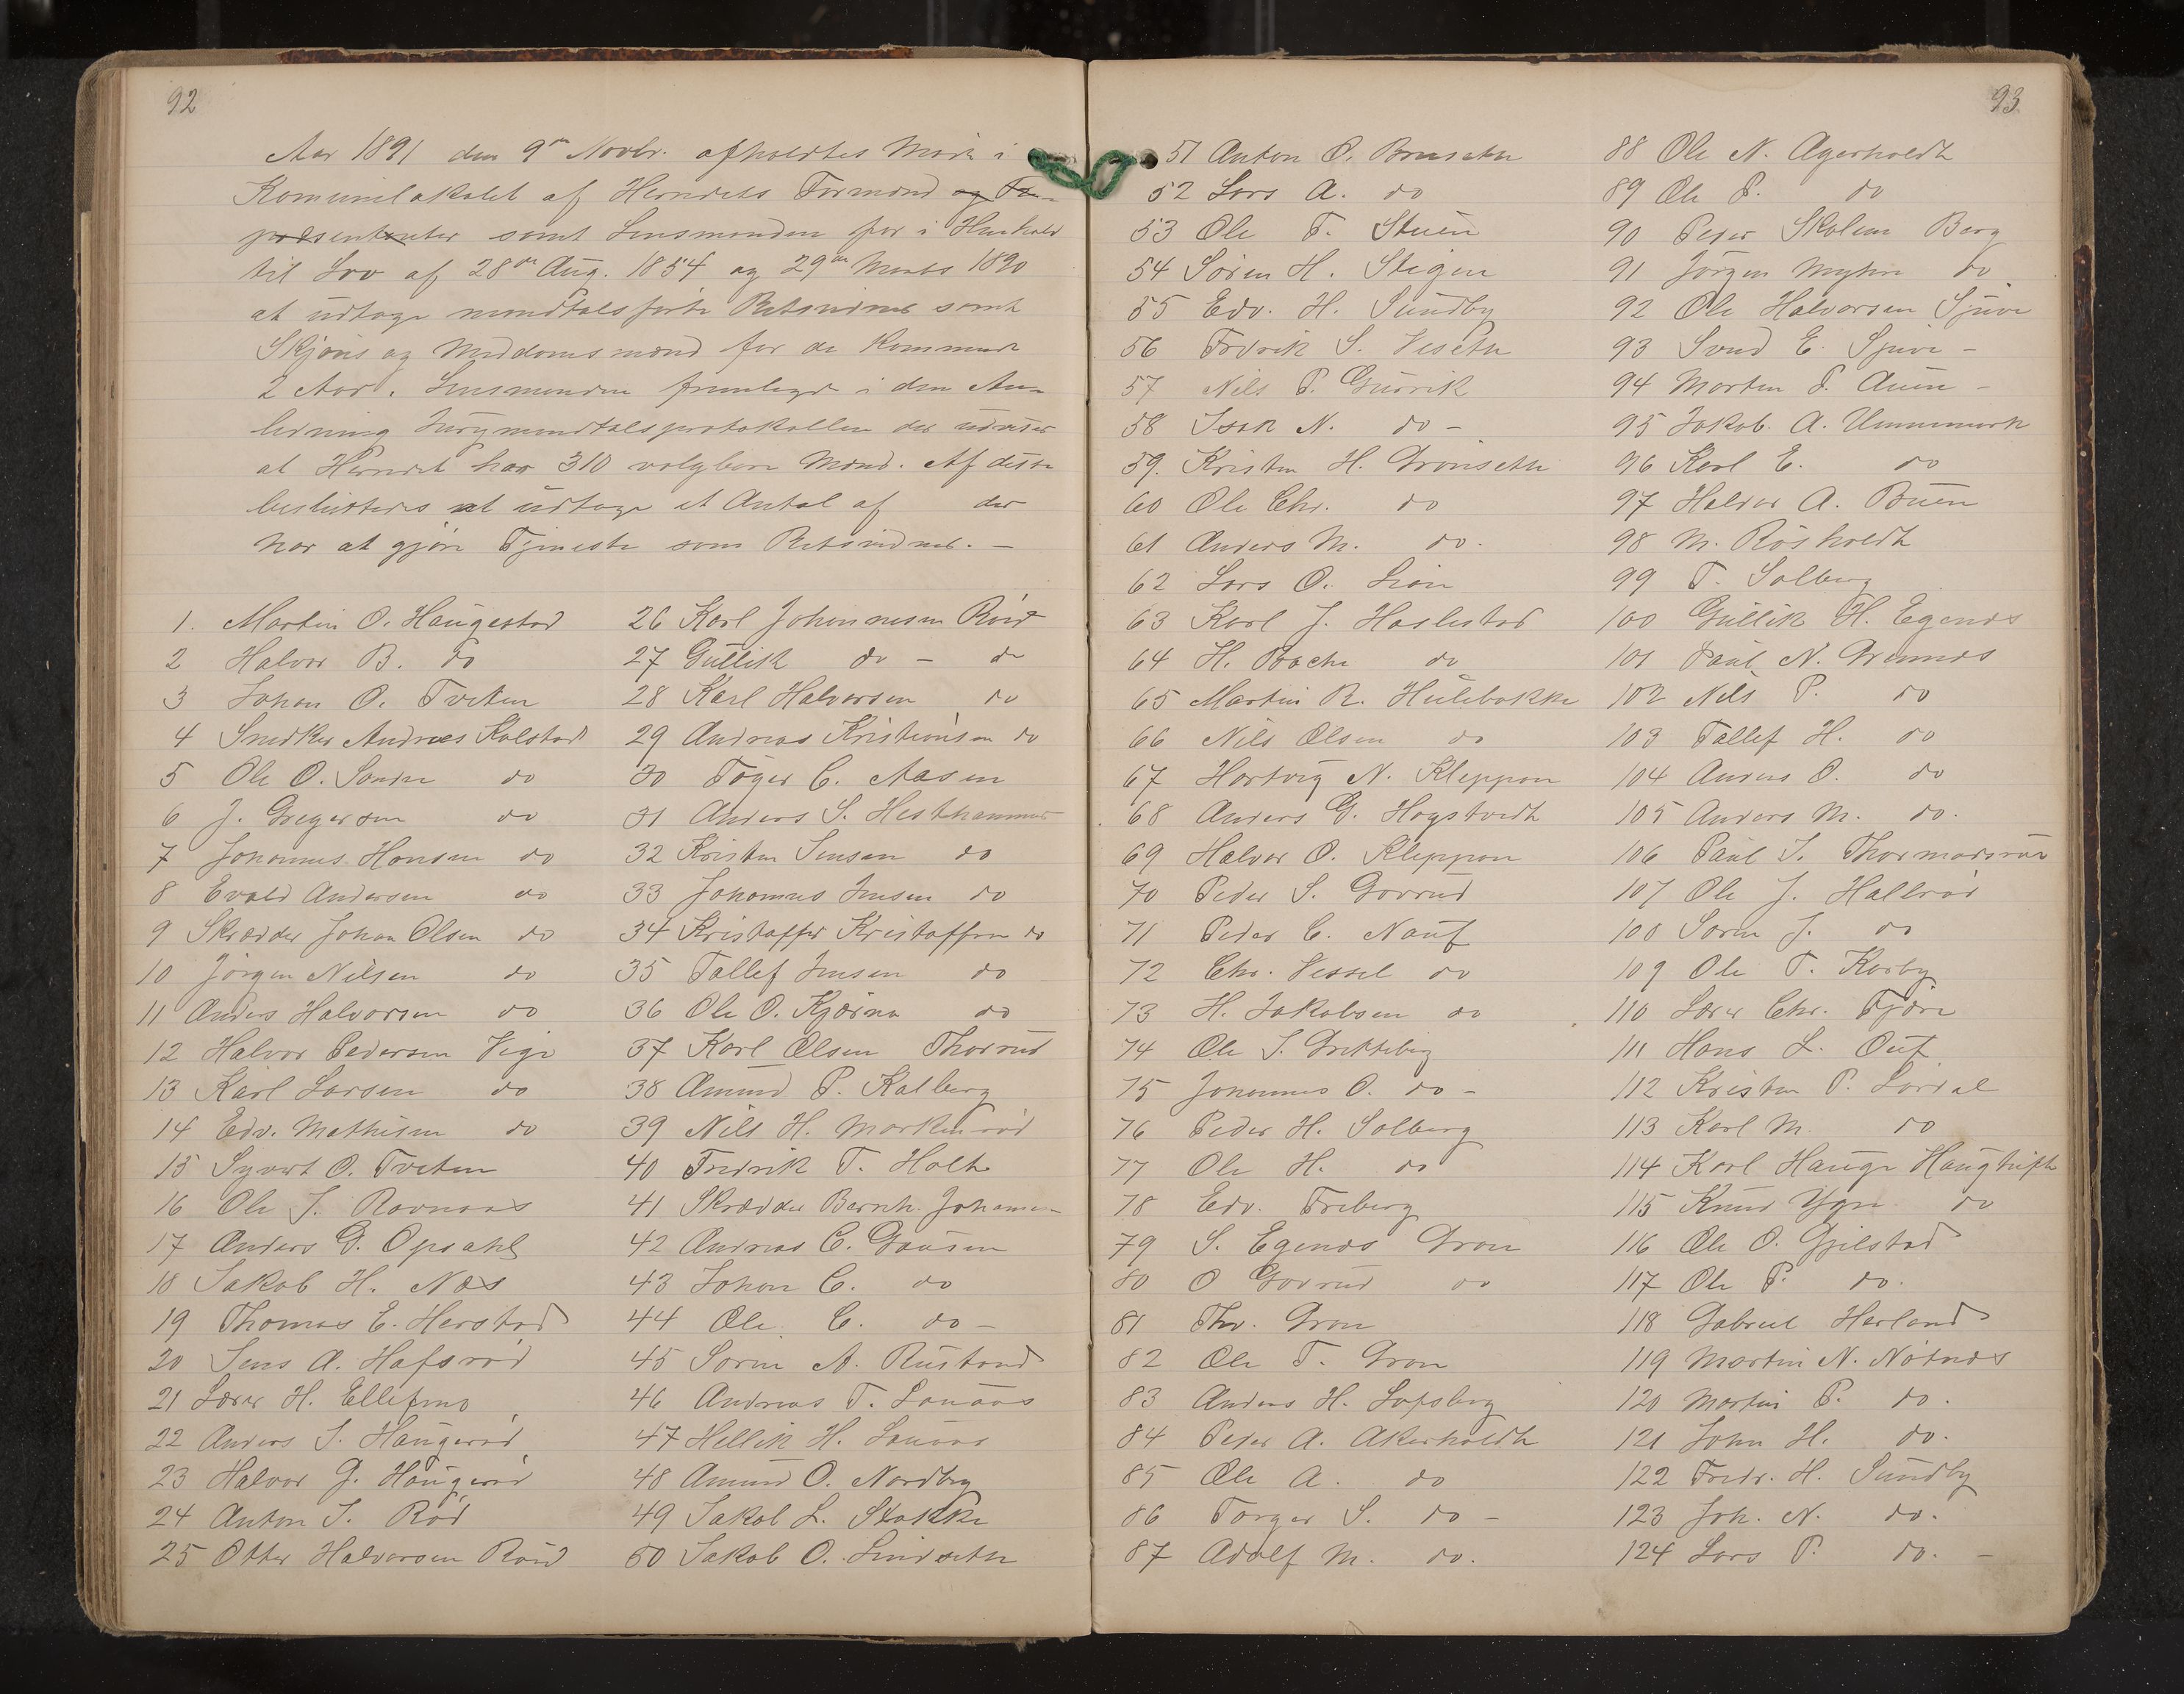 92
Aar 1891 den 9de Novbr. afholdtes Møde i
Komunelokalet af Herredets Formænd og Re-
præsentanter samt Lensmanden for i Henhold
til Lov af 28de Aug. 1854 og 29de Marts 1890
at udtage mandtalsførte Retsvidner samt
Skjøns og Meddomsmænd for de kommende
2 Aar. Lensmanden fremlagde i den An-
ledning Jurymandtalsprotokollen der udviser
at Herredet har 310 valgbare Mænd. Af disse
besluttedes at udtage et Antal af der
har at gjøre Tjeneste som Retsvidner. —
1. Martin O. Haugestad
2 Halvor B. do
3 Johan O. Tveten
4 Snedker Andreas Kolstad
5 Ole O. Søndre do
6 J. Gregersen do
7 Johannes Hansen do
8 Evald Andersen do
9 Skrædder Johan Olsen do
10 Jørgen Nilsen do
11 Anders Halvorsen do
12 Halvor Pedersen Vego
13 Karl Larsen do
14 Edv. Mathisen do
15 Syvert O. Tveten
16 Ole J. Ravnaas
17 Anders G. Opsahl
18 Jakob H. Næs
19 Thomas E. Herstad
20 Jens A. Hafsrød
21 Lærer H. Ellefmo
22 Anders J. Haugerød
23 Halvor G. Haugerød
24 Anton J. Rød
25 Otter Halvorsen Rød
26 Karl Johannesen Røid
27 Gullik do — do
28 Karl Halvorsen do
29 Andreas Kristiansen do
30 Tøger C. Aasen
31 Anders S. Hesthammer
32 Kristen Jensen do
33 Johannes Jensen do
34 Kristoffer Kristoffersen do
35 Tallef Jensen do
36 Ole O. Kjærna do
37 Karl Olsen Thorrud
38 Amund P. Kalberg
39 Nils H. Markenrød
40 Fredrik T. Holte
41 Skrædder Bernh. Johansen
42 Andreas C. Gaasen
43 Johan C. do
44 Ole C. do —
45 Søren A. Rustand
46 Andreas T. Lanaas
47 Hellik H. Lanaas
48 Amund O. Nordby
49 Jakob L. Stokke
50 Jakob O. Lindseth
93
51 Anton O. Bruseth
52 Lars A. do
53 Ole T. Stuen
54 Søren H. Stigen
55 Edv. H. Sundby
56 Fredrik S. Veseth
57 Nils P. Guvrik
58 Isak N. do —
59. Kristen H. Dronseth
60 Ole Chr. do
61 Anders M. do.
62 Lars O. Lian
63 Karl J. Haslestad
64 H. Bache do
65 Martin R. Hulebakke
66 Nils Olsen do
67 Hartvig N. Kleppan
68 Anders G. Hogstvedt
69 Halvor O. Kleppan
70 Peder S. Gorrud
71 Peder C. Nauf
72 Chr. Vessel do
73 H. Jakobsen do
74 Ole J. Dretteberg
75 Johannes O. do —
76 Peder H. Solberg
77 Ole H. do
78 Edv. Freberg
79 S. Egenæs Gran
80 O Gorrud do
81 Thv. Gran
82 Ole T. Gran
83 Anders H. Lofsberg
84 Peder A. Akerholdt
85 Ole A. do
86 Torger S. do —
87 Adolf M. do.
88 Ole N. Agerholdt
89 Ole P. do
90 Peder Skolem Berg
91 Jørgen Myhre do
92 Ole Halvorsen Sjue
93 Svend E. Sjue —
94 Morten P. Auen —
95 Jakob A. Unnemark
96 Karl E. do
97 Halvor A. Buen
98 M. Røsholdt
99 T. Solberg
100 Gullik H. Egenæs
101 Paul N. Grennes
102 Nils P. do
103 Tallef H. do
104 Anders O. do
105 Anders M. do.
106 Paul J. Thormodsrud
107 Ole J. Hallrød
108 Søren J. do
109 Ole T. Korby
110 Lærer Chr. Fjøre
111 Hans L. Ouf
112 Kristen P. Lørdal
113 Karl M. do
114 Karl Hauge Haugtuft
115 Knud Moe do
116 Ole O. Gjelstad
117 Ole P. do.
118 Gabriel Herland
119 Martin N. Nøtnæs
120 Martin P. do.
121 John H. do.
122 Fredr. H. Sundby
123 Joh. N. do.
124 Lars P. do. —